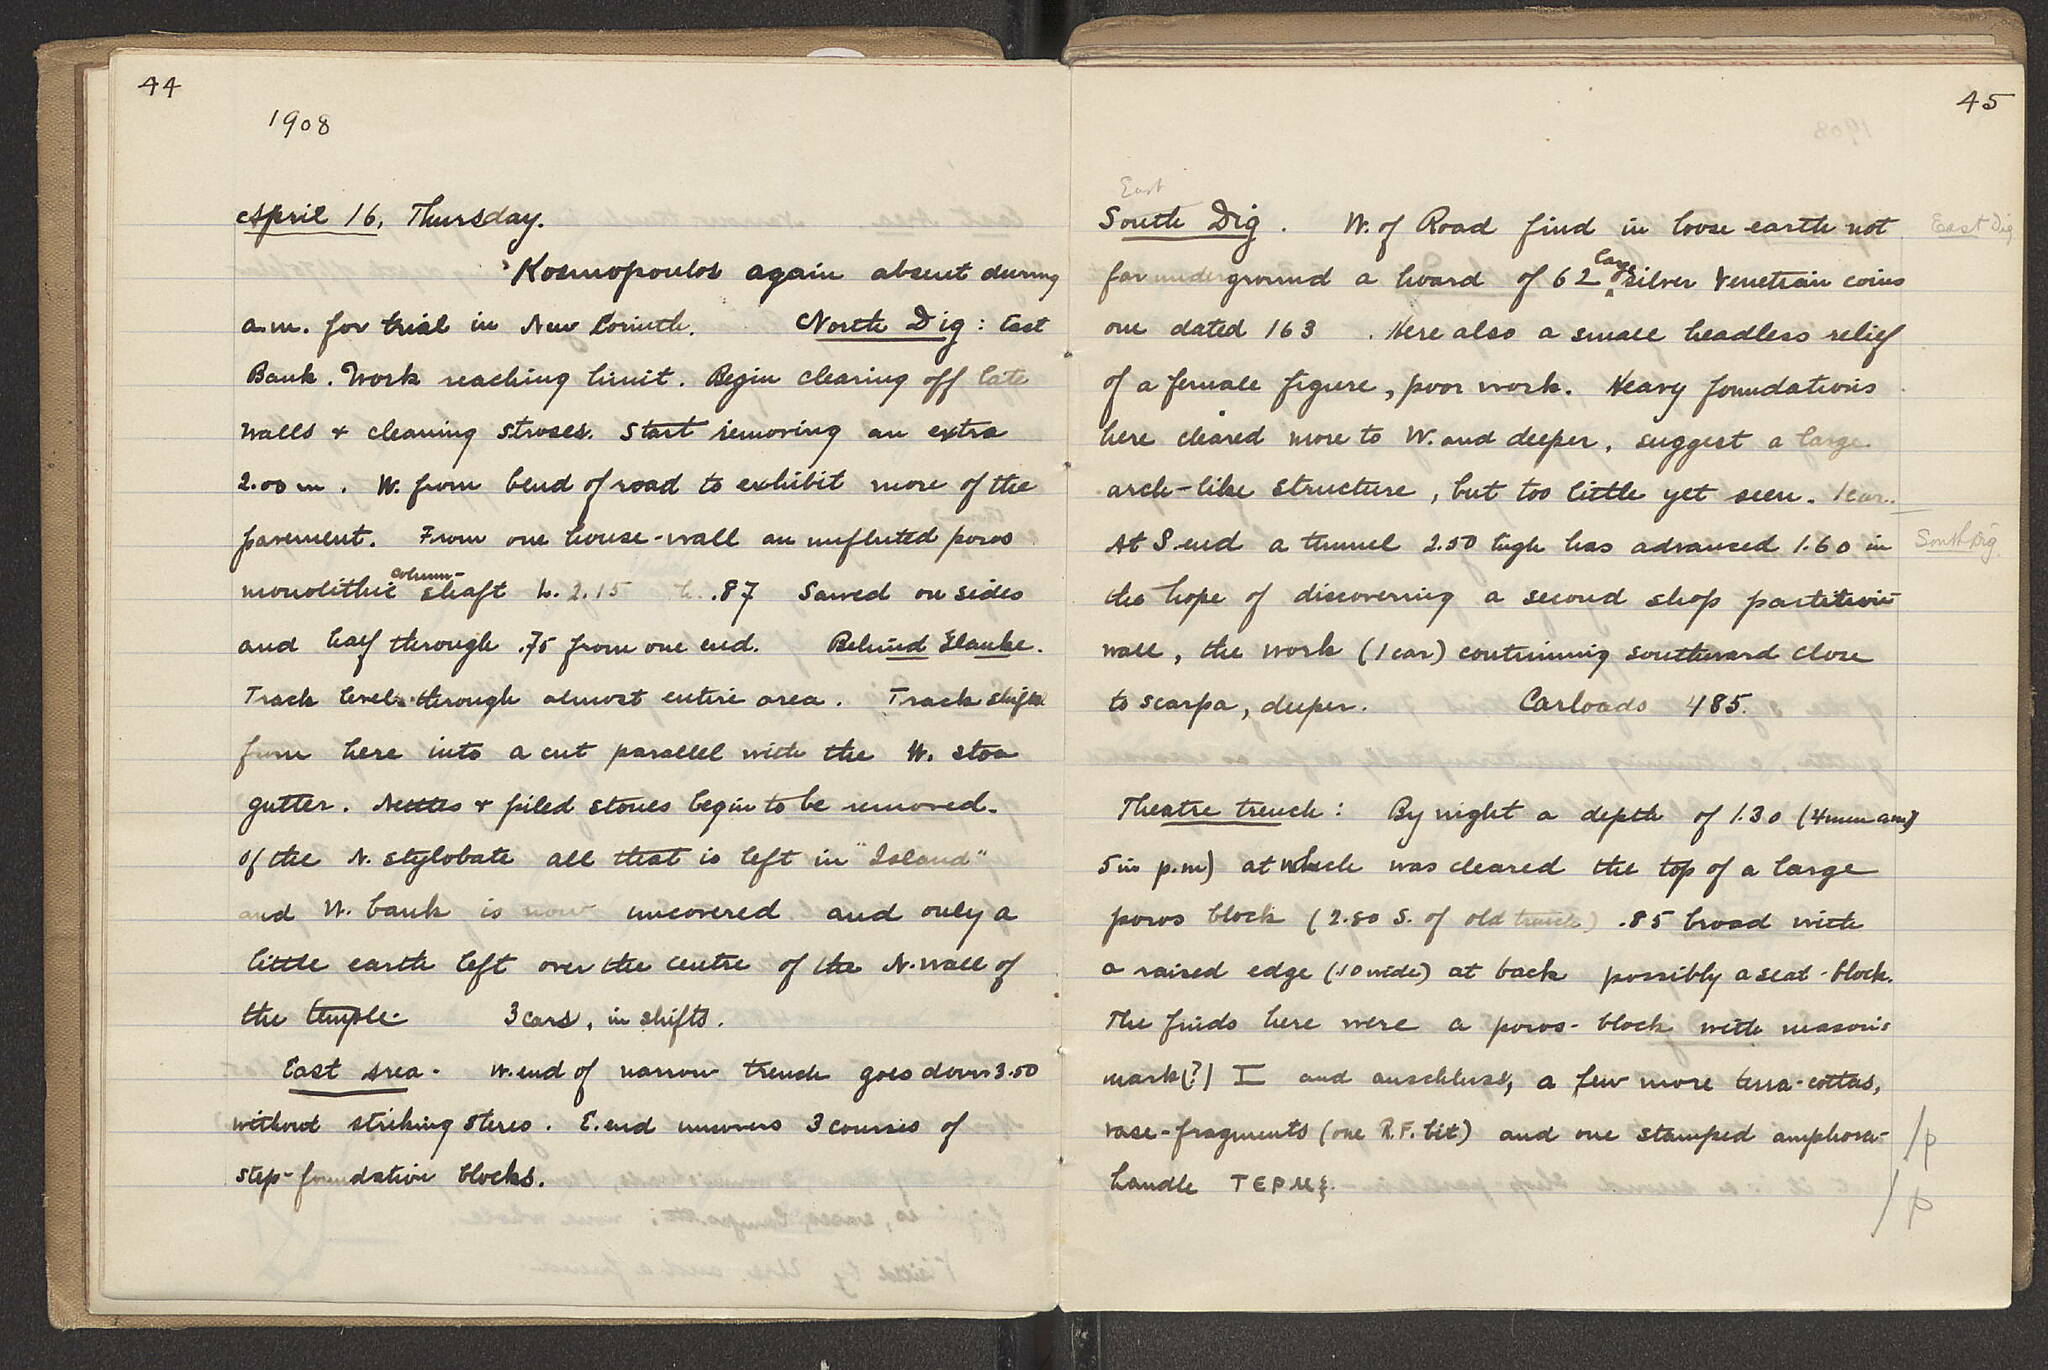 44
1908
April 16, Thursday.
Kosmopoulos again absent during
a.m. for trial in New Corinth. North Dig: East
Bank. Work reaching limit. Begin clearing off late
walls & cleaning stroses. Start removing an extra
2.00 m. W. from bend of road to exhibit more of the
pavement. From one house-wall an unfluted poros
monolithic column-shaft h. 2.15 .87 Sawed on sides
and half through .75 from one end. Behind Glauke.
Track levels through almost entire area. Track shifts
from here into a cut parallel with the W. stoa
gutter. Nettles & piled stones begin to be removed.
Of the N. stylobate all that is left in "Island"
and W. bank is now uncovered and only a
little earth left over the centre of the N. wall of
the temple. 3 cars, in shifts.
East Area. W. end of narrow trench goes down 3.50
without striking stereo. E. end uncovers 3 courses of
step-foundation blocks.
45
East
South Dig. W. of Road find in loose earth not
East Dig
far underground a hoard of 62 silver Venetian coins
one dated 163 . Here also a small headless relief
of a female figure, poor work. Heavy foundations
here cleared more to W. and deeper, suggest a large
arch-like structure, but too little yet seen. 1 car.
At S. end a tunnel 2.50 high has advanced 1.60 in
South Dig
the hope of discovering a second shop partition
wall, the work (1 car) continuing southward close
to scarpa, deeper. Carloads 485.
Theatre trench: By night a depth of 1.30 (4 men a.m.
5 in p.m) at which was cleared the top of a large
poros block (2.80 S. of old trench) .85 broad with
a raised edge (.10 wide) at back possibly a seat-block.
The finds here were a poros-block with mason's
mark (?) I and anschluss, a few more terra-cottas,
vase-fragments (one R.F. bit) and one stamped amphora-
/p
handle ΤΕΡΜ
/p